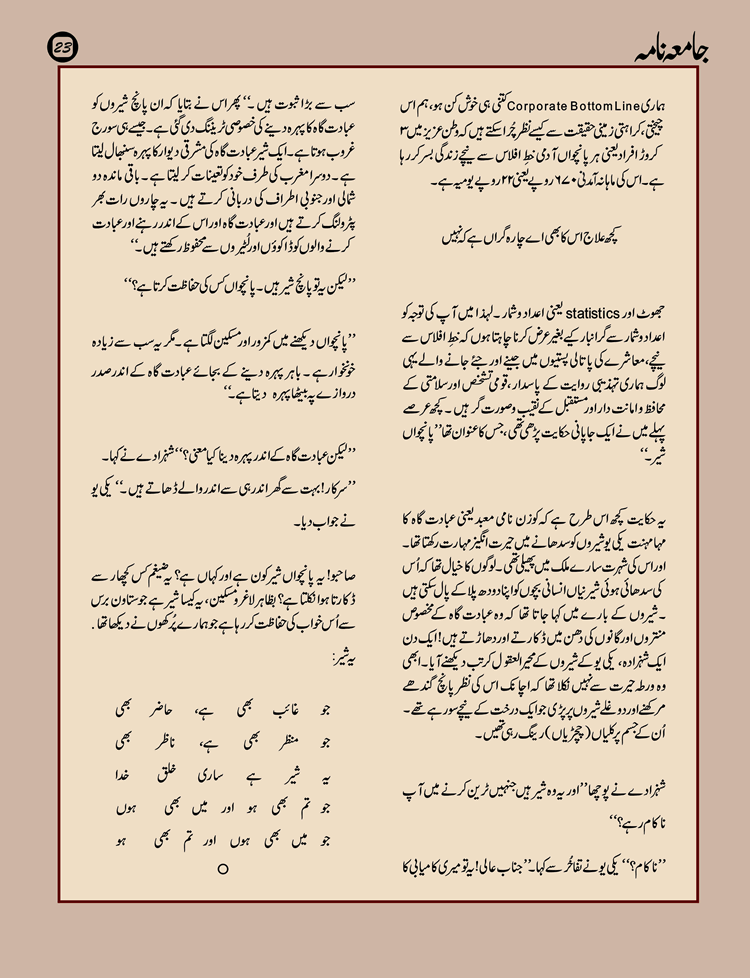 جامعہ نامہ
23
ہماری Corporate Bottom Line کتنی ہی خوش کن ہو، ہم اس
چیختی، کراہتی زمینی حقیقت سے کیسے نظر چُرا سکتے ہیں کہ وطن عزیز میں ۳
کروڑ افراد یعنی ہر پانچواں آدمی خطِ افلاس سے نیچے زندگی بسر کر رہا
ہے۔ اس کی ماہانہ آمدنی ۶۷۰ روپے یعنی ۲۲ روپے یومیہ ہے۔
کچھ علاج اس کا بھی اے چارہ گراں ہے کہ نہیں
جھوٹ اور statistics یعنی اعداد و شمار ۔ لہٰذا میں آپ کی توجہ کو
اعداد و شمار سے گرانبار کیے بغیر عرض کرنا چاہتا ہوں کہ خطِ افلاس سے
نیچے، معاشرے کی پاتالی پستیوں میں جینے اور جتے جانے والے یہی
لوگ ہماری تہذیبی روایت کے پاسدار، قومی تشخص اور سلامتی کے
محافظ و امانت دار اور مستقبل کے نقیب و صورت گر ہیں ۔ کچھ عرصے
پہلے میں نے ایک جاپانی حکایت پڑھی تھی، جس کا عنوان تھا ’’پانچواں
شیر۔‘‘
یہ حکایت کچھ اس طرح ہے کہ کوزن نامی معبد یعنی عبادت گاہ کا
مہا مہنت یکی یو شیروں کو سدھانے میں حیرت انگیز مہارت رکھتا تھا۔
اور اس کی شہرت سارے ملک میں پھیلی تھی ۔ لوگوں کا خیال تھا کہ اُس
کی سدھائی ہوئی شیرنیاں انسانی بچوں کو اپنا دودھ پلا کے پال سکتی ہیں
۔ شیروں کے بارے میں کہا جاتا تھا کہ وہ عبادت گاہ کے مخصوص
منتروں اور گانوں کی دھن میں ڈکارتے اور دھاڑتے ہیں! ایک دن
ایک شہزادہ، یکی یو کے شیروں کے محیرالعقول کرتب دیکھنے آیا۔ ابھی
وہ ورطہ حیرت سے نہیں نکلا تھا کہ اچانک اس کی نظر پانچ گندھے
مرکھنے اور دوغلے شیروں پر پڑی جو ایک درخت کے نیچے سو رہے تھے ۔
اُن کے جسم پر کلیاں (چچڑیاں) رینگ رہی تھیں۔
شہزادے نے پوچھا ’’اور یہ وہ شیر ہیں جنہیں ٹرین کرنے میں آپ
ناکام رہے؟‘‘
’’ناکام؟‘‘ یکی یو نے تفاخُر سے کہا۔ ’’جناب عالی! یہ تو میری کامیابی کا
سب سے بڑا ثبوت ہیں ۔‘‘ پھر اس نے بتایا کہ ان پانچ شیروں کو
عبادت گاہ کا پہرہ دینے کی خصوصی ٹریننگ دی گئی ہے۔ جیسے ہی سورج
غروب ہوتا ہے۔ ایک شیر عبادت گاہ کی مشرقی دیوار کا پہرہ سنبھال لیتا
ہے ۔ دوسرا مغرب کی طرف خود کو تعینات کر لیتا ہے ۔ باقی ماندہ دو
شمالی اور جنوبی اطراف کی دربانی کرتے ہیں ۔ یہ چاروں رات بھر
پٹرولنگ کرتے ہیں اور عبادت گاہ اور اس کے اندر رہنے اور عبادت
کرنے والوں کو ڈاکوؤں اور لُٹیروں سے محفوظ رکھتے ہیں۔‘‘
’’لیکن یہ تو پانچ شیر ہیں ۔ پانچواں کس کی حفاظت کرتا ہے؟‘‘
’’پانچواں دیکھنے میں کمزور اور مسکین لگتا ہے ۔ مگر یہ سب سے زیادہ
خونخوار ہے ۔ باہر پہرہ دینے کے بجائے عبادت گاہ کے اندر صدر
دروازے پہ بیٹھا پہرہ دیتا ہے۔‘‘
’’لیکن عبادت گاہ کے اندر پہرہ دینا کیا معنی؟‘‘ شہزادے نے کہا۔
’’سرکار! بہت سے گھر اندر ہی سے اندر والے ڈھاتے ہیں ۔‘‘ یکی یو
نے جواب دیا۔
صاحبو! یہ پانچواں شیر کون ہے اور کہاں ہے؟ یہ ضیغم کس کچھار سے
ڈکارتا ہوا نکلتا ہے؟ بظاہر لاغر و مسکین، یہ کیسا شیر ہے جو ستاون برس
سے اُس خواب کی حفاظت کر رہا ہے جو ہمارے پُرکھوں نے دیکھا تھا .
یہ شیر:
جو غائب بھی ہے، حاضر بھی
جو منظر بھی ہے، ناظر بھی
یہ شیر ہے ساری خلق خدا
جو تم بھی ہو اور میں بھی ہوں
جو میں بھی ہوں اور تم بھی ہو